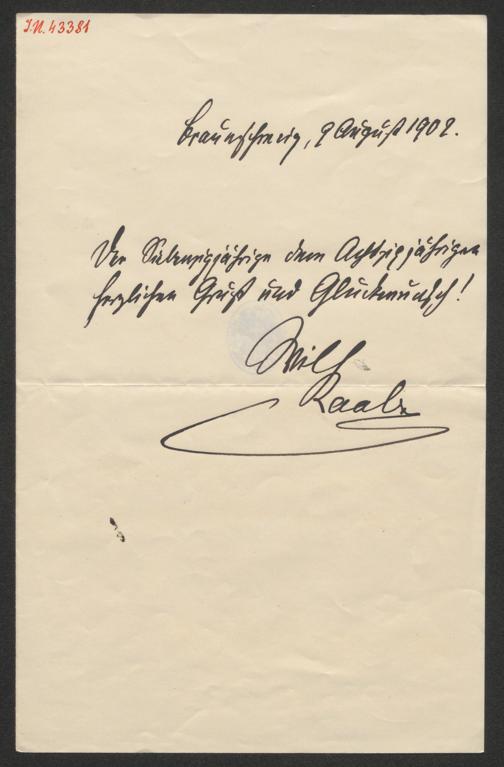 I.N. 43381
Braunschweig, 9 August 1902.
Der Siebenzigjährige dem Achtzigjährigen
herzlichen Gruß und Glückwunsch!
Wilh
Raabe